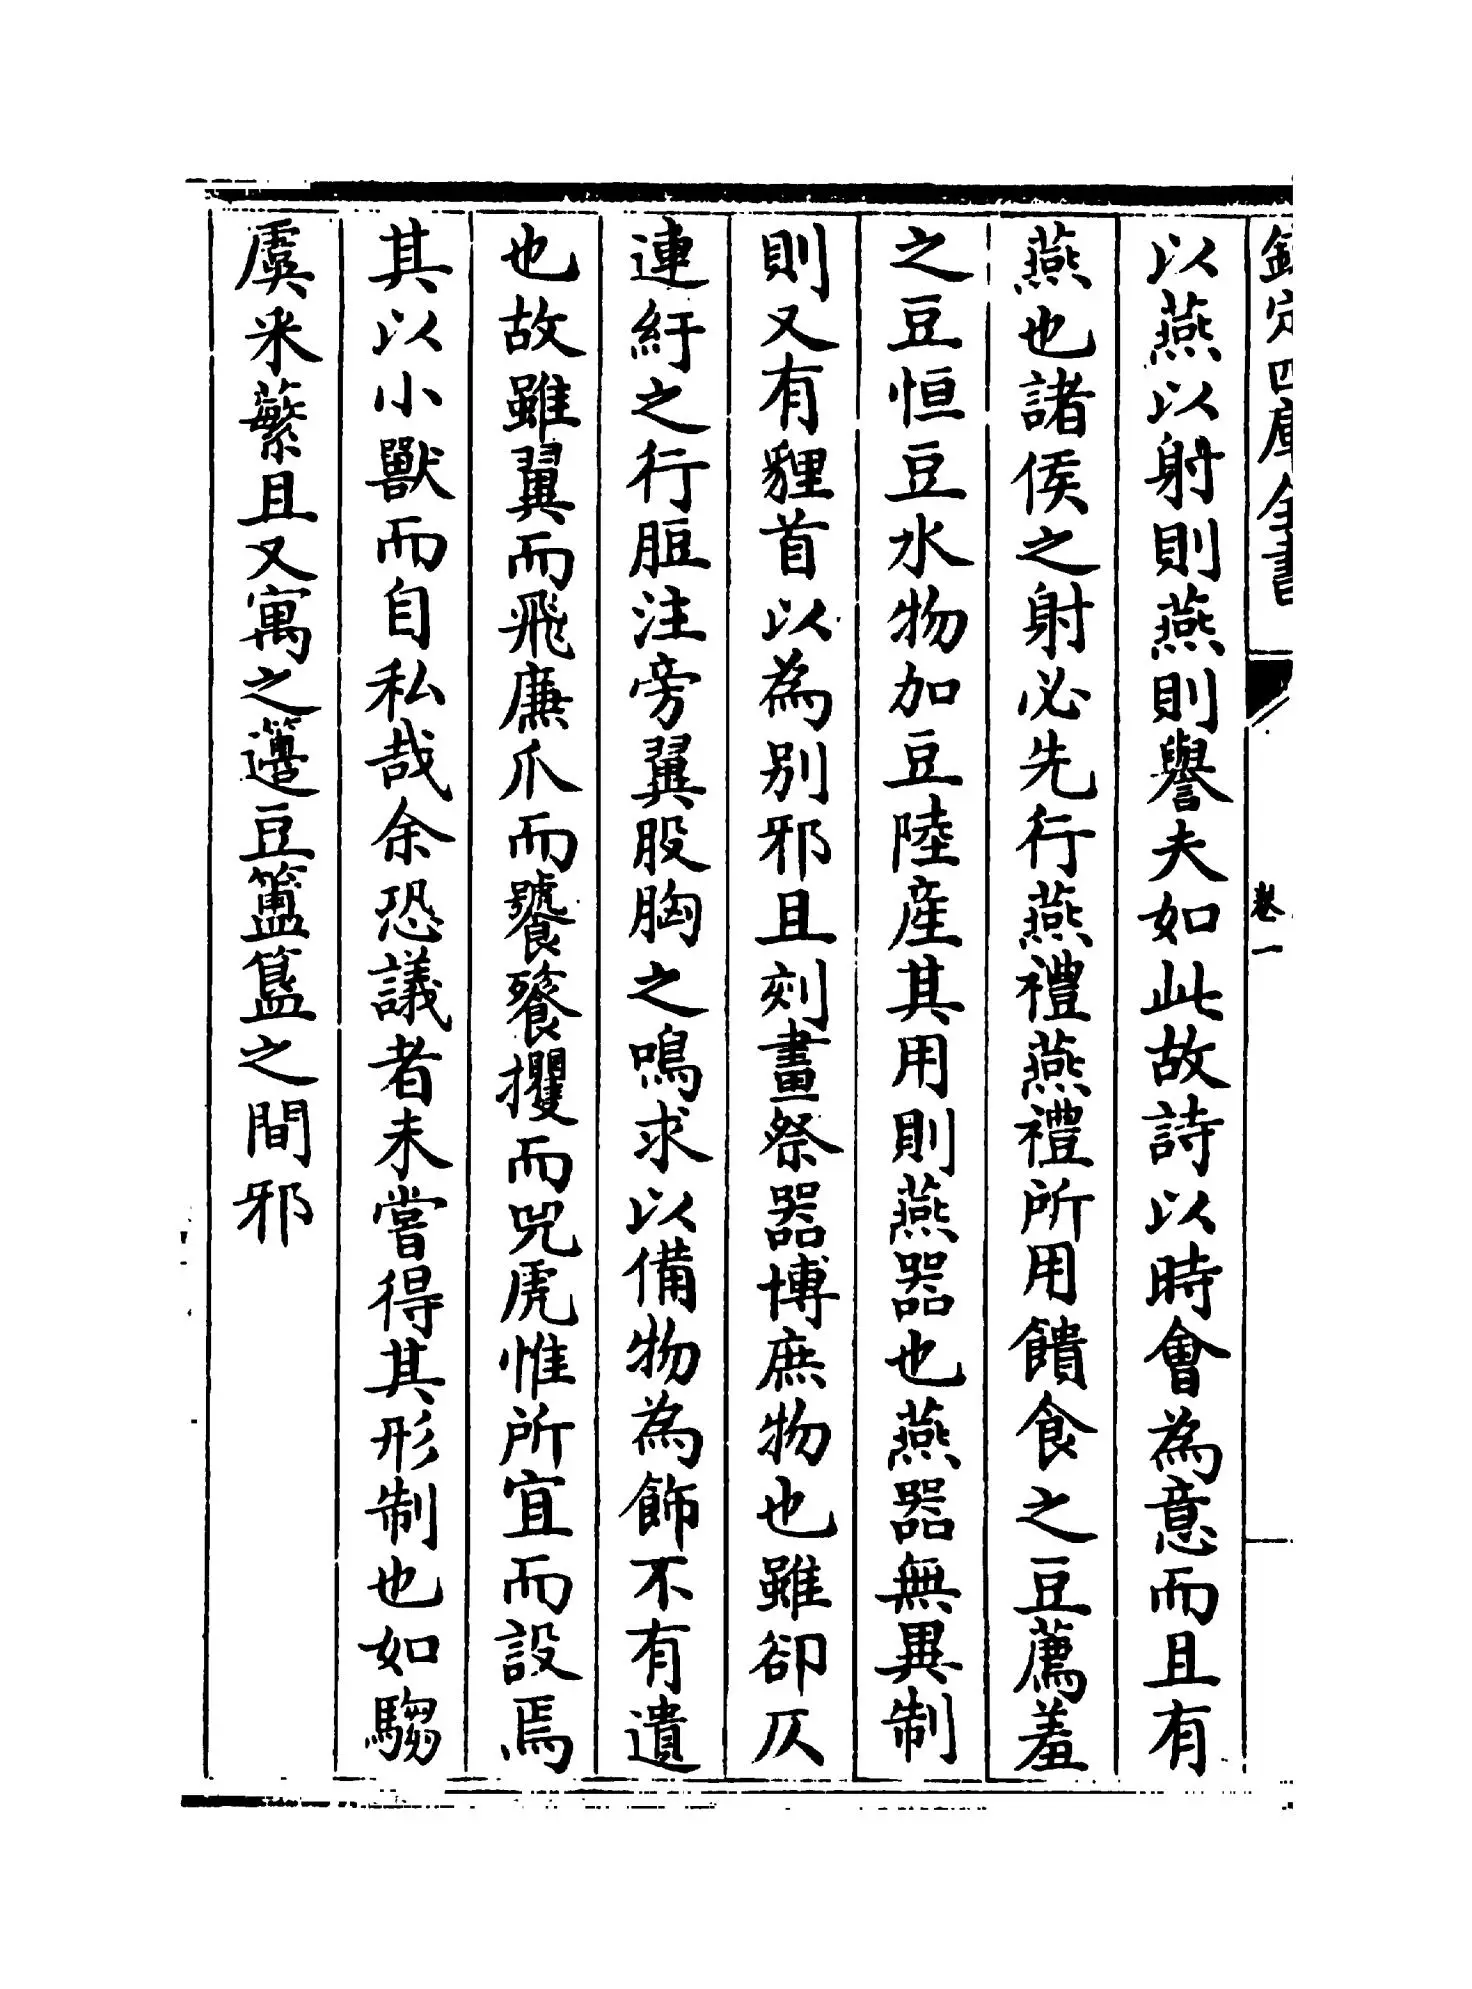 欽定四庫全書
卷一
以燕以射則燕則譽夫如此故詩以時會為意而且有
燕也諸侯之射必先行燕禮燕禮所用饋食之豆薦羞
之豆恒豆水物加豆陸產其用則燕器也燕器無異制
則又有貍首以為别邪且刻畫祭器博庶物也雖卻仄
連紆之行脰注旁翼股胸之鳴求以備物為飾不有遺
也故雖翼而飛廉爪而饕餮攫而兕虎惟所宜而設焉
其以小獸而自私哉余恐議者未嘗得其形制也如騶
虞采蘩且又寓之籩豆簠簋之間邪